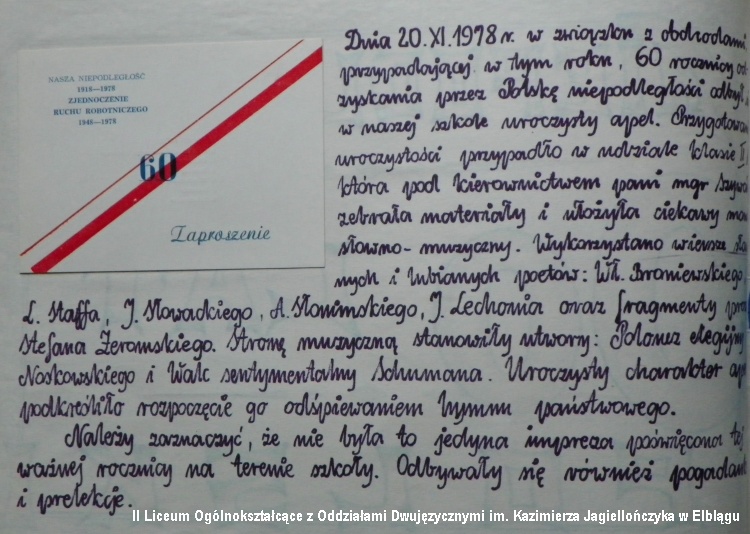 NASZA NIEPODLEGŁOŚĆ
1918—1978
ZJEDNOCZENIE
RUCHU ROBOTNICZEGO
1948—1978
60
Zaproszenie
Dnia 20.XI.1978 r. w związku z obchodami
przypadającej w tym roku, 60 rocznicy od-
zyskania przez Polskę niepodległości odbył
w naszej szkole uroczysty apel. Przygotowan
uroczystości przypadło w udziale klasie II
która pod kierownictwem pani mgr Szyw
zebrała materiały i ułożyła ciekawy mon
słowno-muzyczny. Wykorzystano wiersze sła
nych i lubianych poetów: Wł. Broniewskiego,
L. Staffa, J. Słowackiego, A. Słonimskiego, J. Lechonia oraz fragmenty pro
Stefana Żeromskiego. Stronę muzyczną stanowiły utwory: Polonez elegijny
Noskowskiego i Walc sentymentalny Schumana. Uroczysty charakter ape
podkreśliło rozpoczęcie go odśpiewaniem hymnu państwowego.
Należy zaznaczyć, że nie była to jedyna impreza poświęcona tej
ważnej rocznicy na terenie szkoły. Odbywały się również pogadank
i prelekcje.
II Liceum Ogólnokształcące z Oddziałami Dwujęzycznymi im. Kazimierza Jagiellończyka w Elblągu